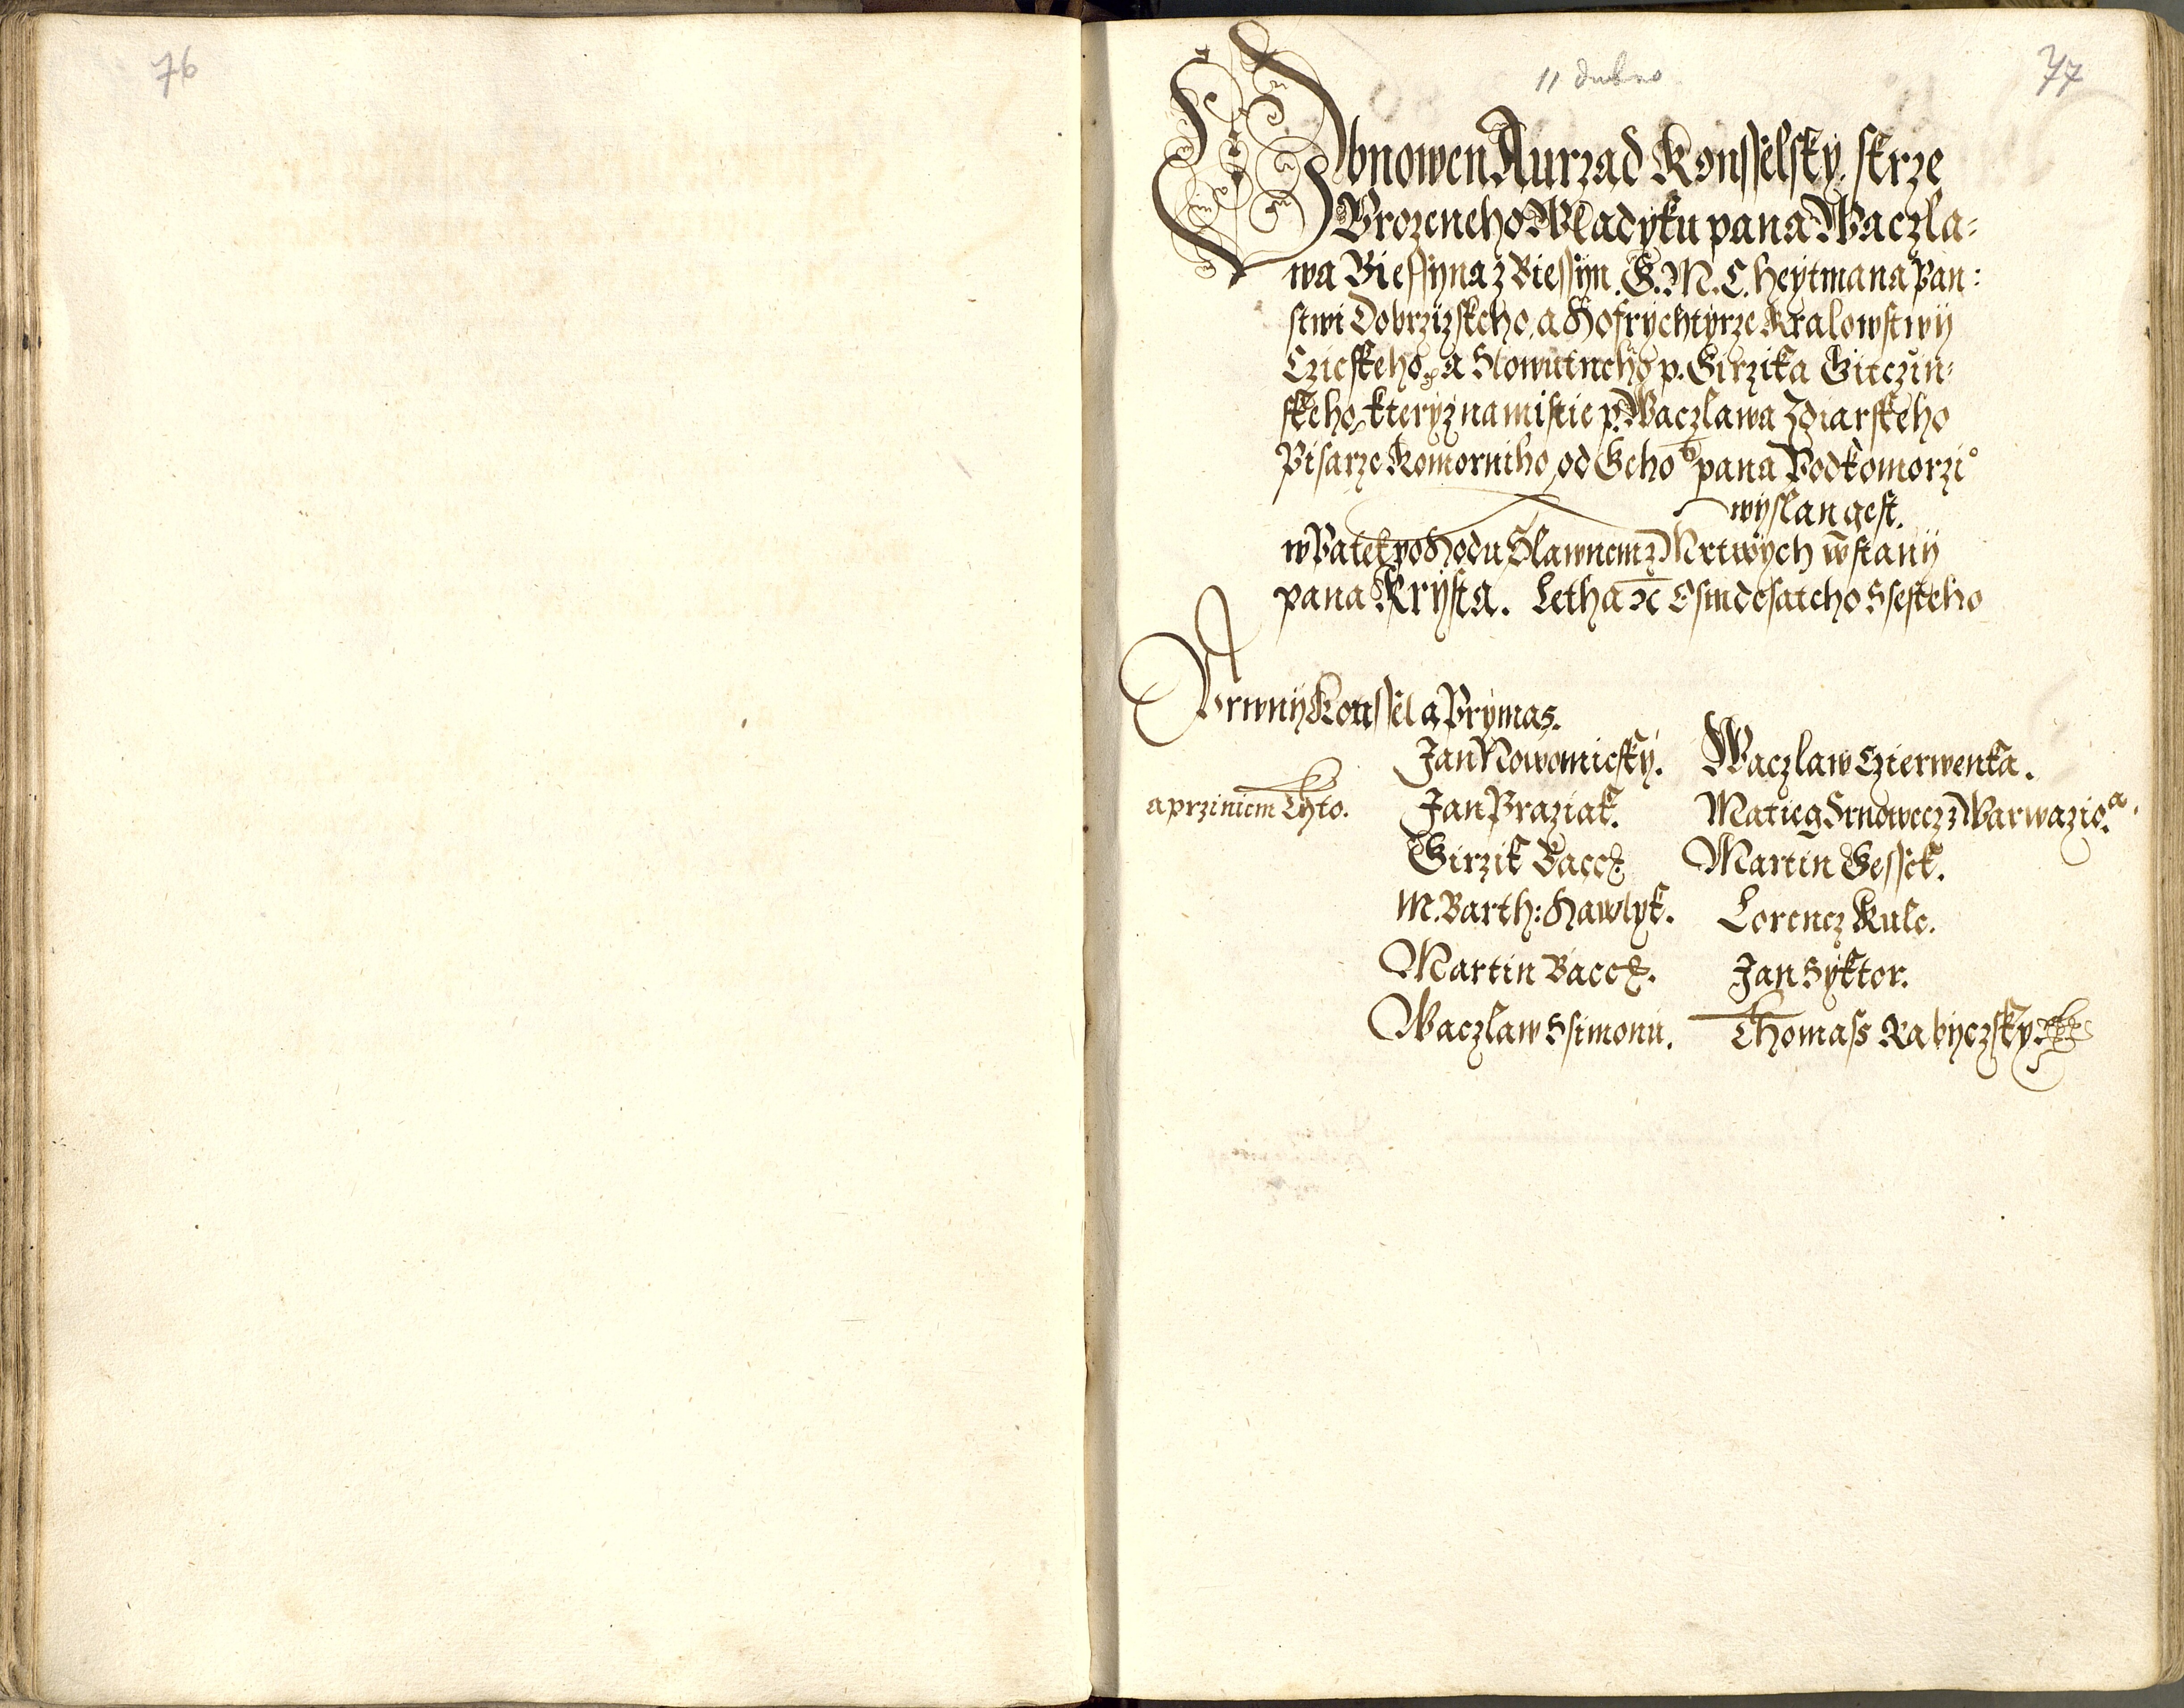 76
11 dubna
77
Obnowen Aurzad Konsselsky, skrze
Urozeneho Wladyku pana Waczla=
wa Biessyna z Biessyn. G. M. C. Heytmana pan:
stwi Dobrzizskeho, a Hofrychtyrze Kralowstwij
Czieskeho, a Slowutneho p. Girzika Gitczin:
skeho, kteryz na mistie p. Waczlawa Zdiarskeho
Pisarze Komorniho, od Geho Mti pana Podkomorzio
wyslan gest.
w Patek po Hodu Slawnem z Mrtwych wstanij
pana Krysta. Letha ꝛc Osmdesateho Ssesteho
Prwnij Konssel a Prymas.
Jan Nowomiesky. Waczlaw Czierwenka.
a przi niem Tyto. Jan Praziak. Matieg Srnowecz z Warwaziowa.
Girzik Bacc. Martin Gessek.
M. Barth: Hawlyk. Lorencz Kule.
Martin Bacc. Jan Syktor.
Waczlaw Ssimonu. Thomass Rabyczsky.